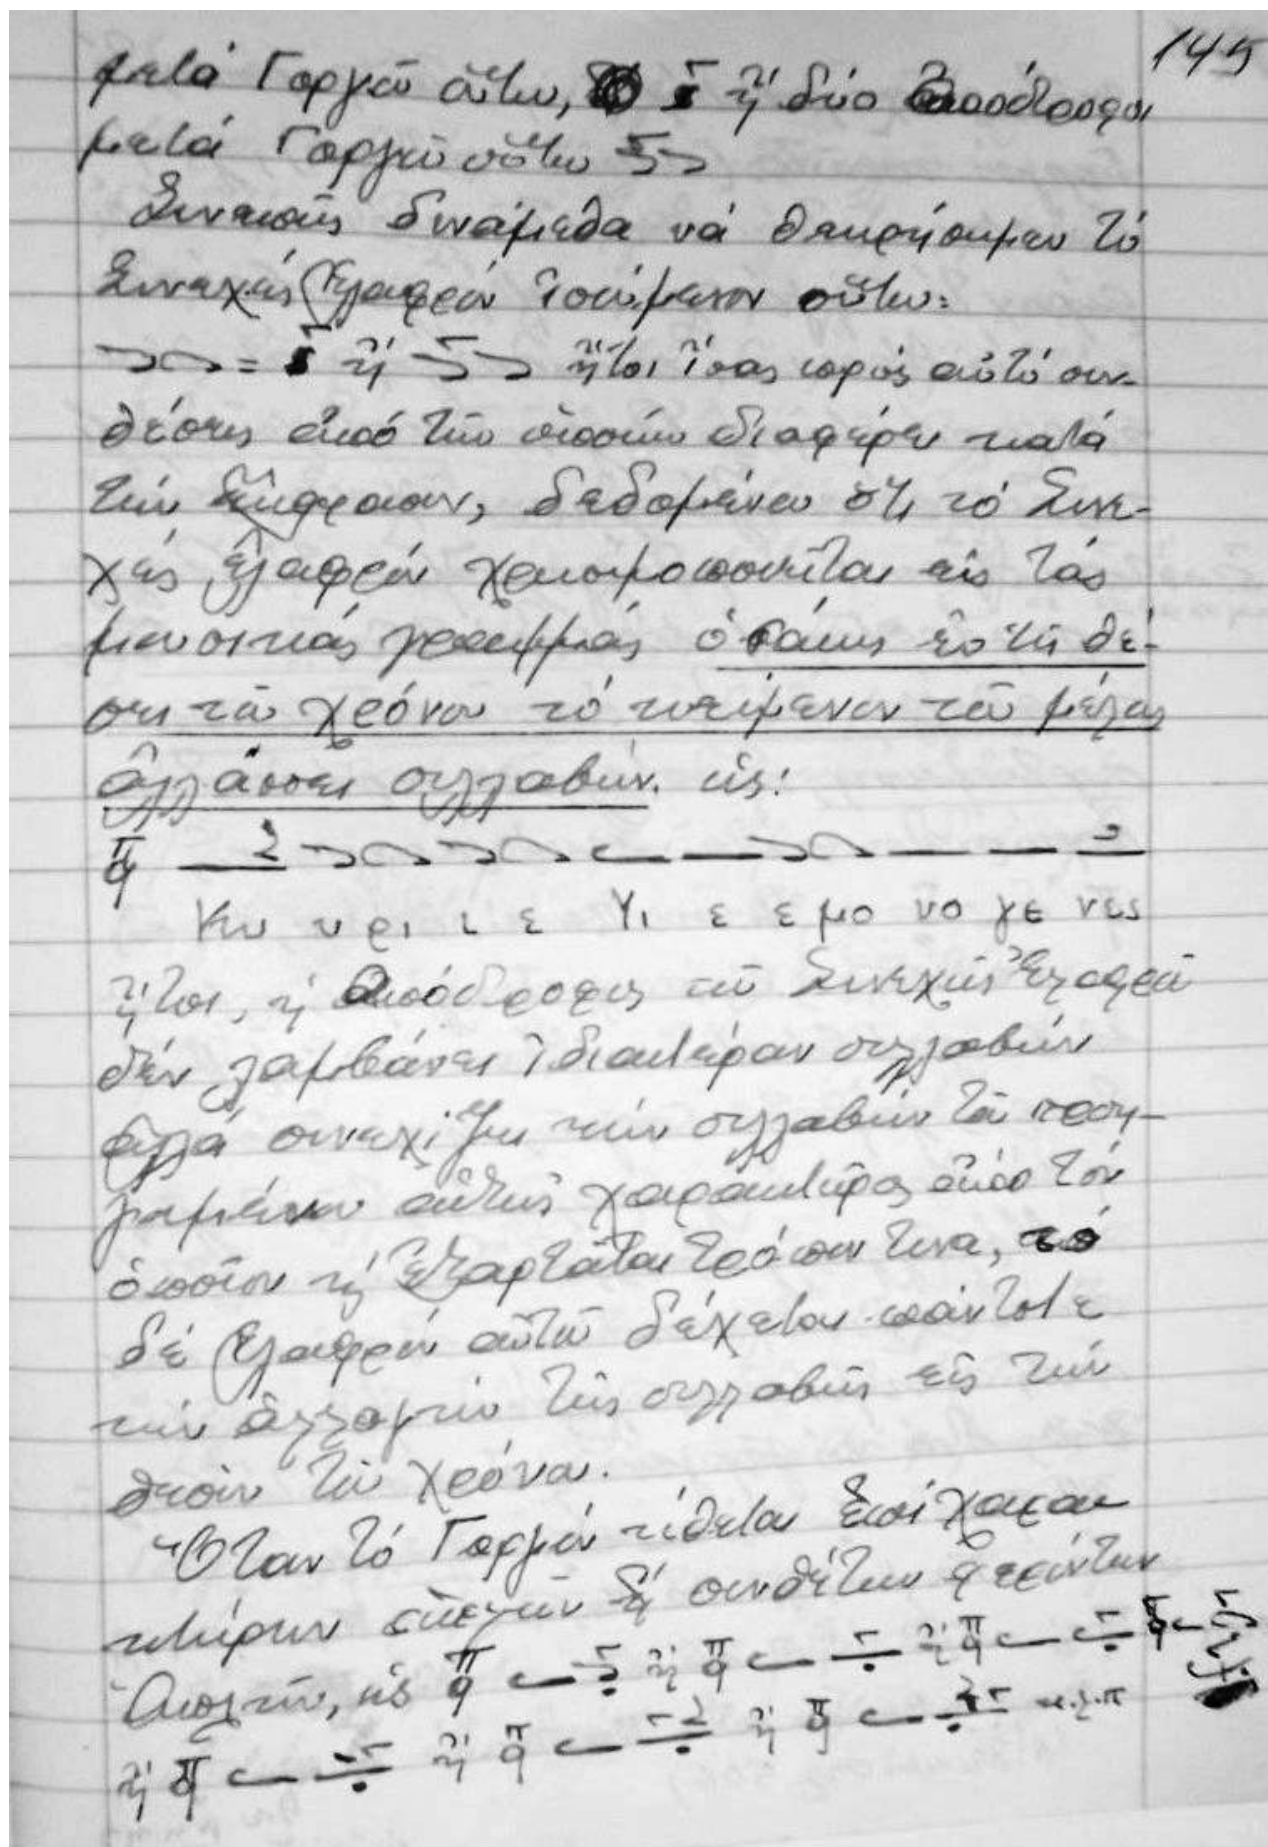 145
μετά Γοργοῦ οὕτω, ἤ δύο Ἀπόστροφοι
μετά Γοργοῦ οὕτω
Συνεπῶς δυνάμεθα νά θεωρήσωμεν τό
Συνεχές Ἐλαφρόν ἰσούμενον οὕτω:
= ἤ ἤτοι ἴσας πρός αὐτό συν-
θέσεις ἀπό τῶν ὁποίων διαφέρει κατά
τήν ἔκφρασιν, δεδομένου ὅτι τό Συνε-
χές ἐλαφρόν χρησιμοποιεῖται εἰς τάς
μουσικάς γραμμάς ὁσάκις ἐν τῇ θέ-
σει τοῦ χρόνου τό κείμενον τοῦ μέλους
ἀλλάσσει συλλαβήν. ὡς:
π
q
Κυ υ ρι ι ε Υι ε ε μο νο γε νες
ἤτοι, ἡ Ἀπόστροφος τοῦ Συνεχοῦς Ἐλαφροῦ
δέν λαμβάνει ἰδιαιτέραν συλλαβήν
ἀλλά συνεχίζει τήν συλλαβήν τοῦ προη-
γουμένου αὐτῆς χαρακτῆρος ἀπό τόν
ὁποῖον ἐξαρτᾶται τρόπον τινα, τό
δέ Ἐλαφρόν αὐτοῦ δέχεται πάντοτε
τήν ἀλλαγήν τῆς συλλαβῆς εἰς τήν
θέσιν τοῦ χρόνου.
Ὅταν τό Γοργόν τίθεται ἐπί χαρα-
κτήρων ἁπλῶν ἤ συνθέτων φερόντων
Ἁπλῆν, ὡς π q ἤ π q ἤ π q
ἤ π q ἤ π q ἤ π q κ.λ.π